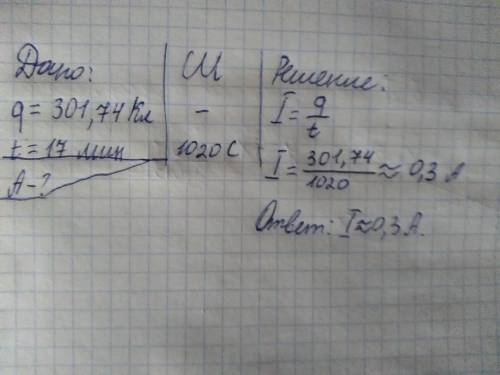 Дано:
q = 301,74 Кл
t = 17 мин
A - ?
СИ
-
1020 с
Решение:
I = q/t
I = 301,74/1020 ≈ 0,3 А
Ответ: I ≈ 0,3 А.